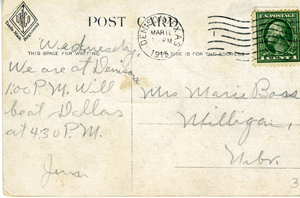 POST CARD
THIS SPACE FOR WRITING
SIDE IS FOR THE ADDRESS
DENISON
TEXAS
MAR 11
PM
1915
U.S. POSTAGE
1 CENT 1
Wednesday,
We are at Denison
1:00 P.M. Will
beat Dallas
at 4:30 P.M.
Mrs Marie Bass
Milligan,
Nebr.
3